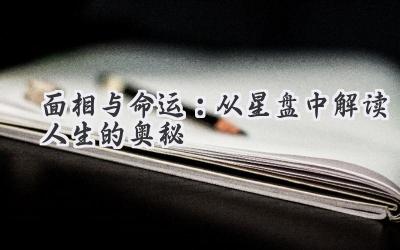 面相与命运：从星盘中解读
人生的奥秘